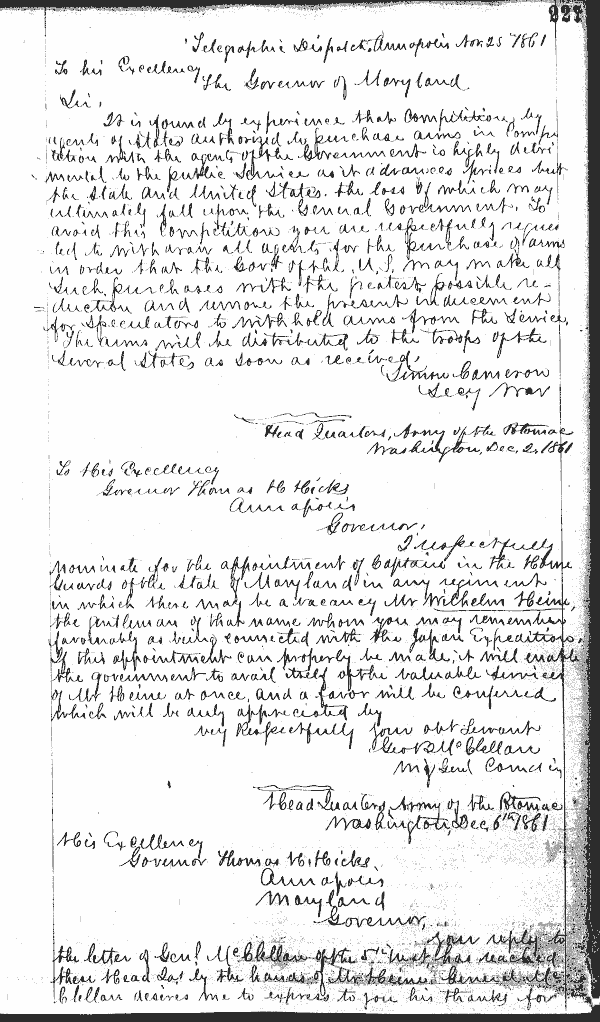 227
Telegraphic Dispatch, Annapolis Nov. 25 1861
To his Excellency
The Governor of Maryland
Sir,
It is found by experience that competition by
agents of States authorized to purchase arms in compe
tition with the agents of the Government is highly detri
mental to the public service as it advances prices but
the State and United States. the loss of which may
ultimately fall upon the General Government. To
avoid this competition you are respectfully reques
ted to withdraw all agents for the purchase of arms
in order that the Govt of the U.S. may make all
such purchases with the greatest possible re-
duction and remove the present inducement
for speculators to withhold arms from the Service.
The arms will be distributed to the troops of the
Several States as soon as received.
Simon Cameron
Secy War
Head Quarters, Army of the Potomac
Washington, Dec. 2, 1861
To His Excellency
Governor Thomas H Hicks
Annapolis
Governor,
I respectfully
nominate for the appointment of Captain in the Home
Guards of the State of Maryland in any regiment
in which there may be a vacancy Mr Wilhelm Heine,
the gentleman of that name whom you may remember
favorably as being connected with the Japan Expedition.
If this appointment can properly be made, it will enable
the government to avail itself of the valuable services
of Mr Heine at once, and a favor will be conferred
which will be duly appreciated by
very Respectfully your obt Servant
Geo B McClellan
Maj Genl Comdin
Head Quarters, Army of the Potomac
Washington, Dec. 6th 1861
His Excellency
Governor Thomas H. Hicks
Annapolis
Maryland
Governor,
your reply to
the letter of Genl McClellan of the 5th Inst has reached
these Head Qrs by the hands of Mr Heine. General Mc
Clellan desires me to express to you his thanks for